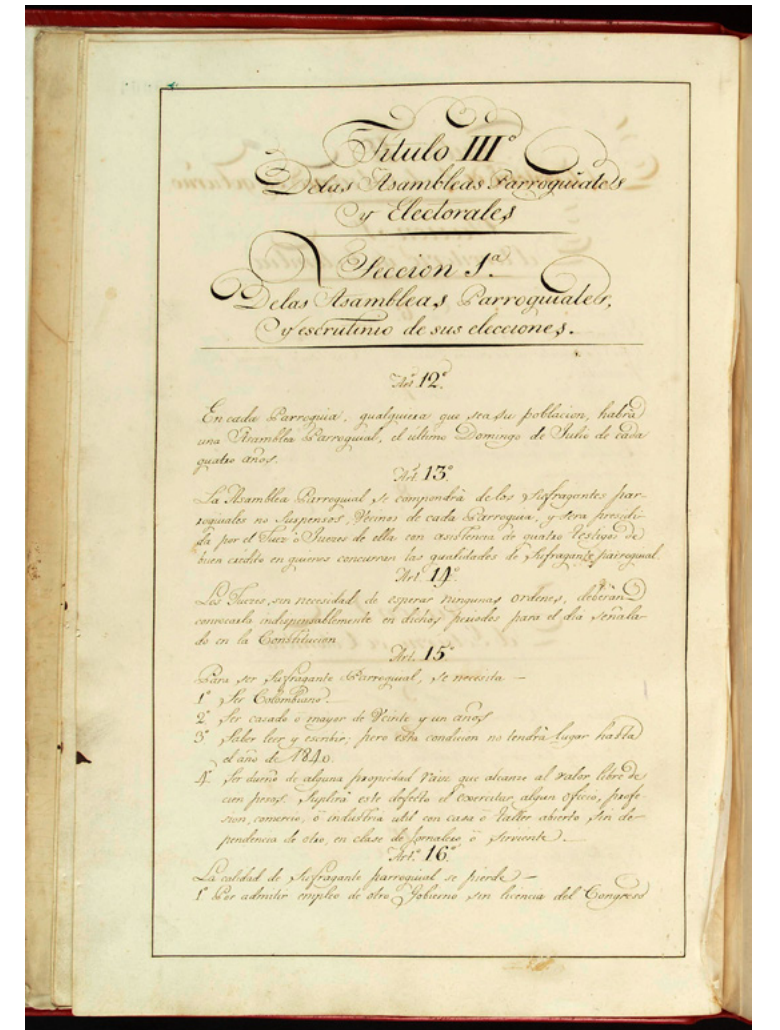 Título III.º
De las Asambleas Parroquiales
y Electorales
Seccion 1.ª
De las Asambleas Parroquiales,
y escrutinio de sus elecciones.
Art. 12.º
En cada Parroquia, qualquiera que sea su poblacion, habrá
una Asamblea Parroquial, el último Domingo de Julio de cada
quatro años.
Art. 13.º
La Asamblea Parroquial se compondrá de los Sufragantes par-
roquiales no Suspensos, Vecinos de cada Parroquia, y será presidi-
da por el Juez ó Jueces de ella con asistencia de quatro testigos de
buen crédito en quienes concurran las qualidades de Sufragante parroquial.
Art. 14.º
Los Jueces, sin necesidad de esperar ningunas ordenes, deberán
convocarla indispensablemente en dichos periodos para el dia señala-
do en la Constitucion
Art. 15.º
Para ser Sufragante Parroquial, se necesita —
1º Ser Colombiano.—
2º Ser casado ó mayor de Veinte y un años
3º Saber leer y escribir; pero esta condicion no tendrá lugar hasta
el año de 1840.
4º Ser dueño de alguna propiedad raiz que alcanze al valor libre de
cien pesos. Suplirá este defecto el exercitar algun oficio, profe-
sion, comercio, ó industria util con casa ó taller abierto sin de-
pendencia de otro, en clase de Jornalero ó Sirviente.—
Art.º 16.º
La calidad de Sufragante parroquial se pierde —
1º Por admitir empleo de otro Gobierno sin licencia del Congreso